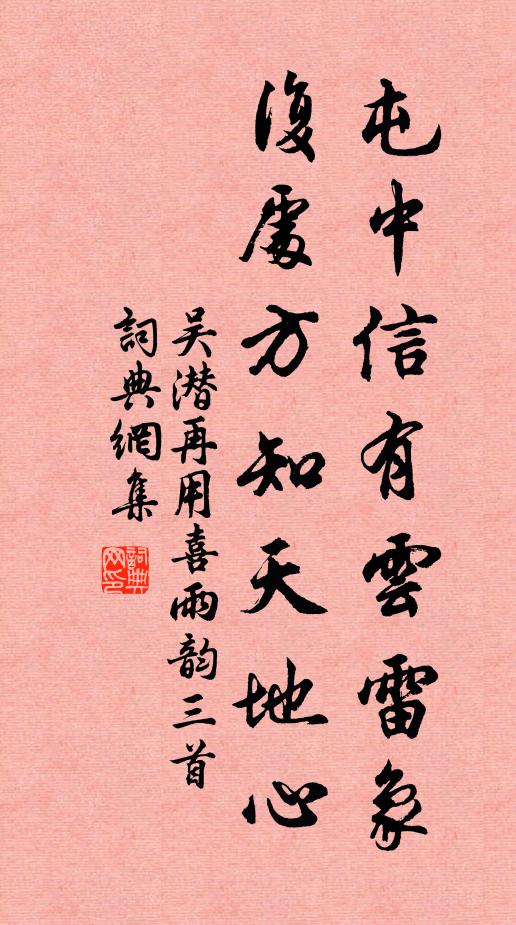 屯中信有雲雷象
復處方知天地心
吴潜再用喜雨韵三首
詞典網集
詞典網印